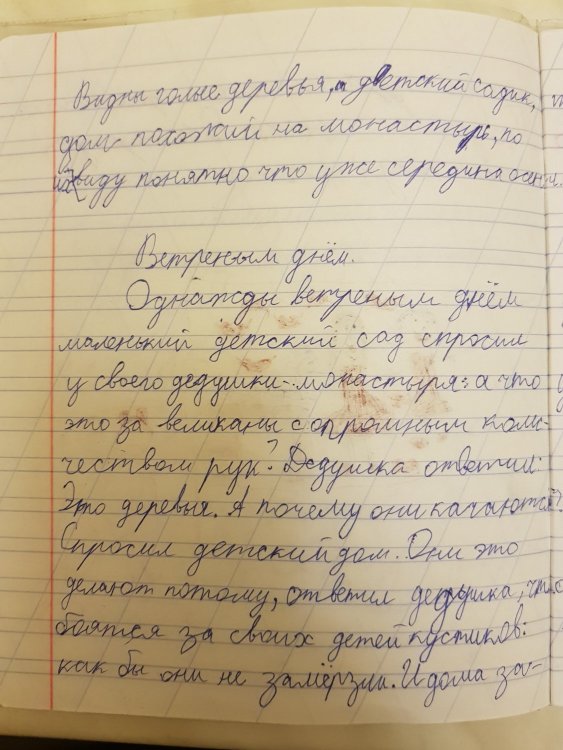 Видны голые деревья, и детский садик,
дом похожий на монастырь, по
виду понятно что уже середина осени.
Ветреным днём.
Однажды ветреным днём
маленький детский сад спросил
у своего дедушки-монастыря: а что
это за великаны с огромным коли-
чеством рук? Дедушка ответил:
Это деревья. А почему они качаются?
Спросил детский дом. Они это
делают потому, ответил дедушка, что
боятся за своих детей кустиков:
как бы они не замёрзли. И дома за-